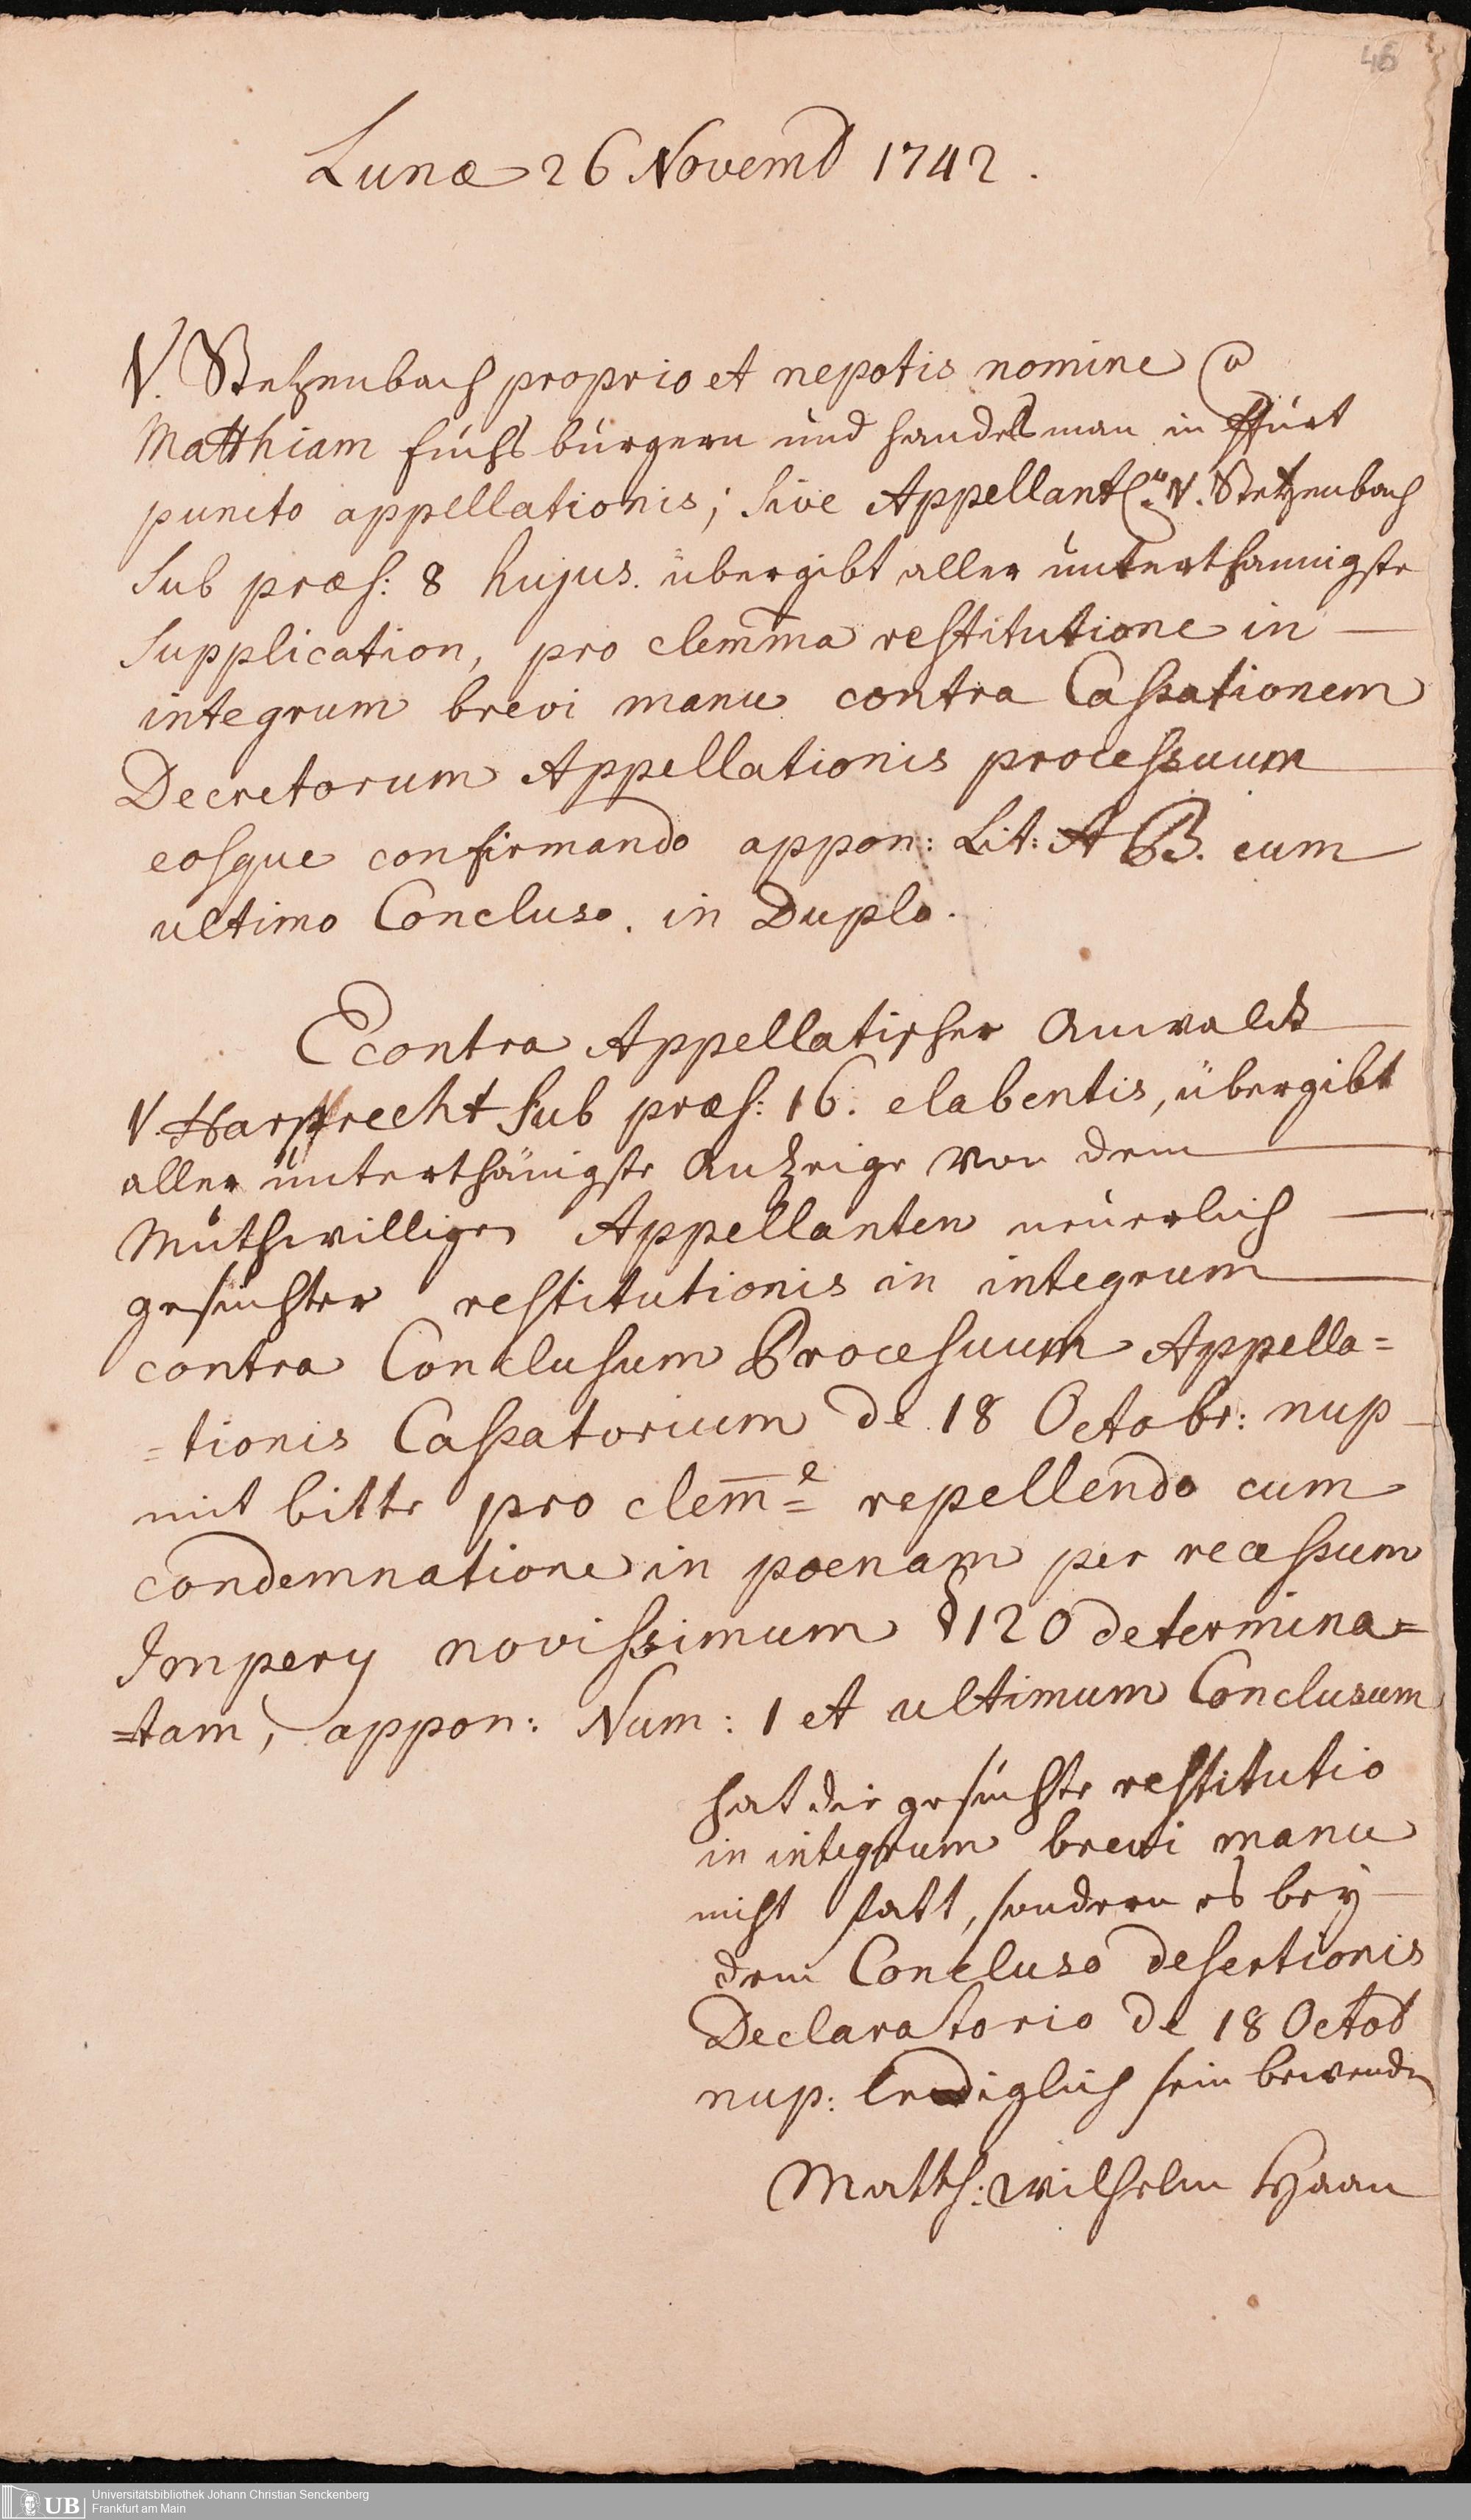 46
Lunæ 26 Novemb 1742.
V. Stetzenbach proprio et nepotis nomine C͡a
Matthiam Fuchs bürgern und handelsman in ffurt
puncto appellationis; sive Appellant V. Stetzenbach
sub præs: 8 hujus. übergibt aller unterthannigste
Supplication, pro clem̄ma restitutione in
integrum brevi manu contra Cassationem
Decretorum Appellationis processuum
eosque confirmando appon: Lit: A B. cum
ultimo Concluso. in Duplo.
Econtra Appellatischer Anwaldt
V. Harpprecht sub præs: 16. elabentis, übergibt
aller unterthänigste Anzeige von dem
Muthwilligen Appellanten neuerlich
gesuchter restitutionis in integrum
contra Conclusum Processuum Appella=
=tionis Cassatorium de 18 Octobr: nup
mit bitte pro clem̄e repellendo cum
condemnatione in poenam per recessum
Impery novissimum § 120 determina=
=tam, appon: Num: 1 et ultimum Conclusum
hat die gesuchte restitutio
in integrum brevi manu
nicht statt, sondern es bey
dem Concluso desertionis
Declaratorio de 18 Octob
nup: lediglich sein bewenden
Matth: Wilhelm Haan
UB
Universitätsbibliothek Johann Christian Senckenberg
Frankfurt am Main